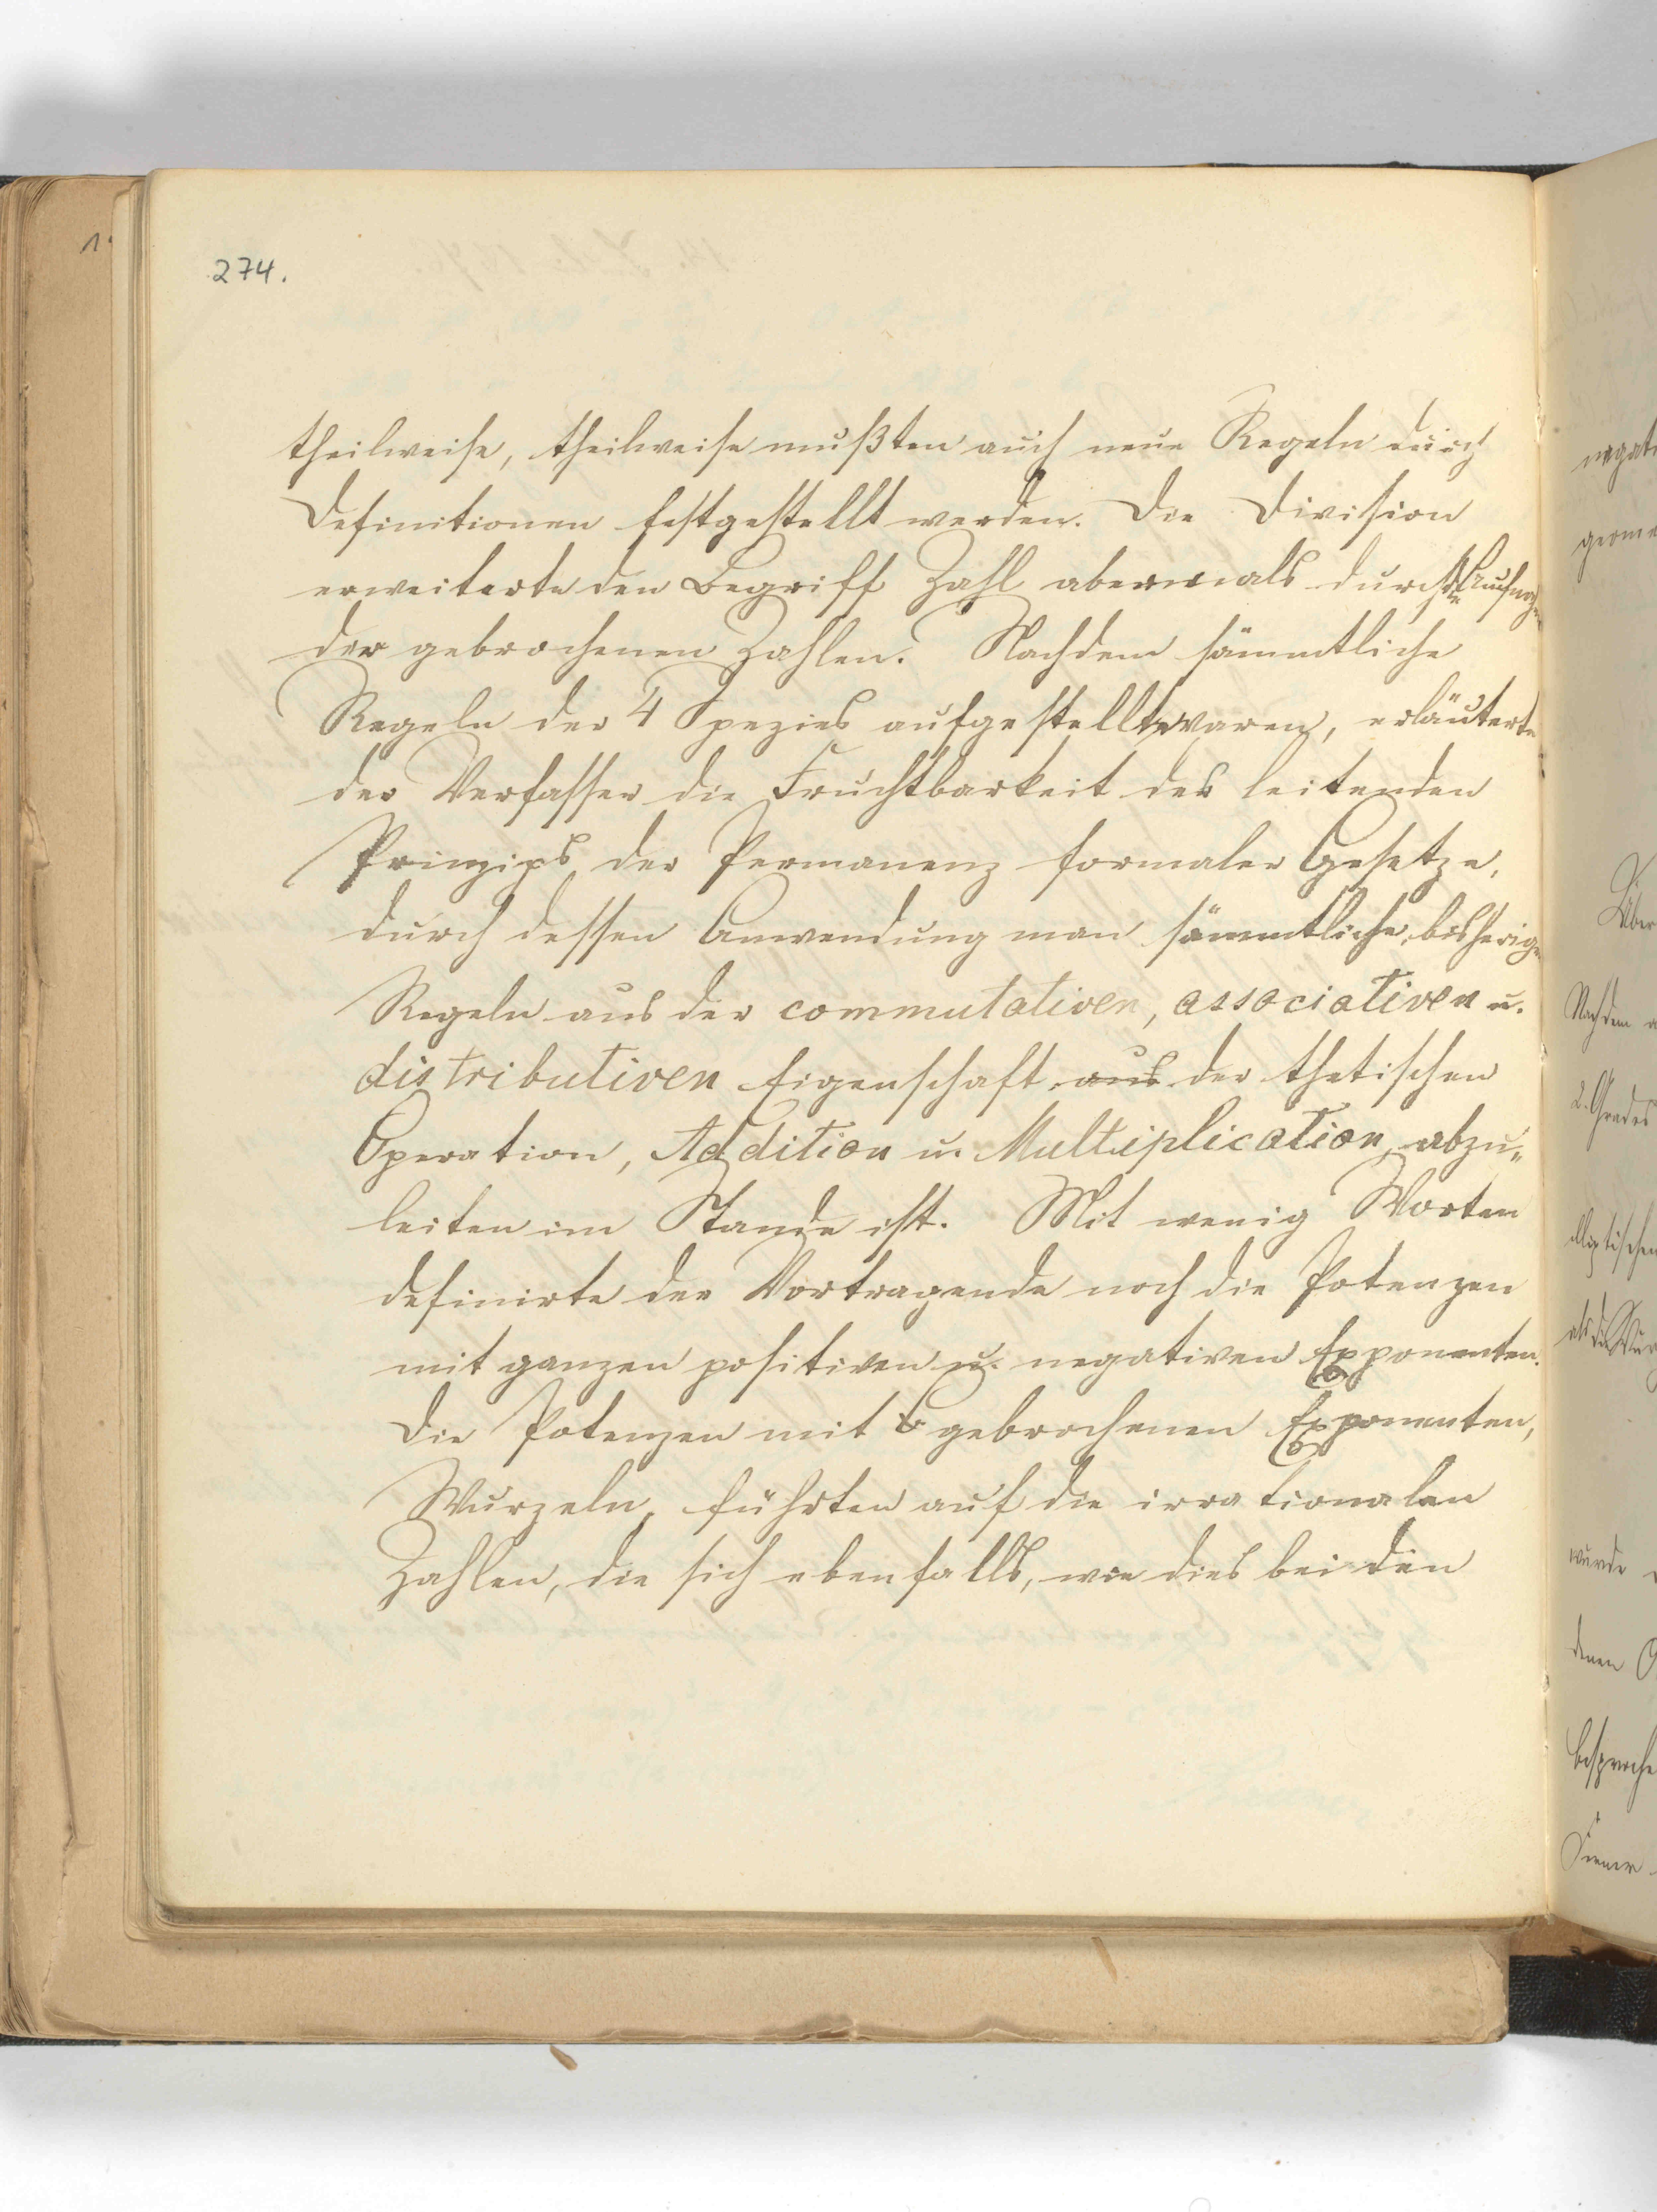 274.
theilweise, theilweise mußten auch neue Regeln durch
Definitionen festgestellt werden. Die Division
erweiterte den Begriff Zahl abermals durch die Aufnahme
der gebrochenen Zahlen. Nachdem sämmtliche
Regeln der 4 Spezies aufgestellt waren, erläuterte
der Verfasser die Fruchtbarkeit des leitenden
Prinzips der Permanenz formaler Gesetze,
durch dessen Anwendung man sämmtliche bisherige
Regeln aus der commutativen, associativen u.
distributiven Eigenschaft aus der thetischen
Operation, Addition u. Multiplication, abzu„
leiten im Stande ist. Mit wenig Worten
definirte der Vortragende noch die Potenzen
mit ganzen positiven u. negativen Exponenten.
Die Potenzen mit gebrochenen Exponenten,
Wurzeln, führten auf die irrationalen
Zahlen, die sich ebenfalls, wie dies bei den